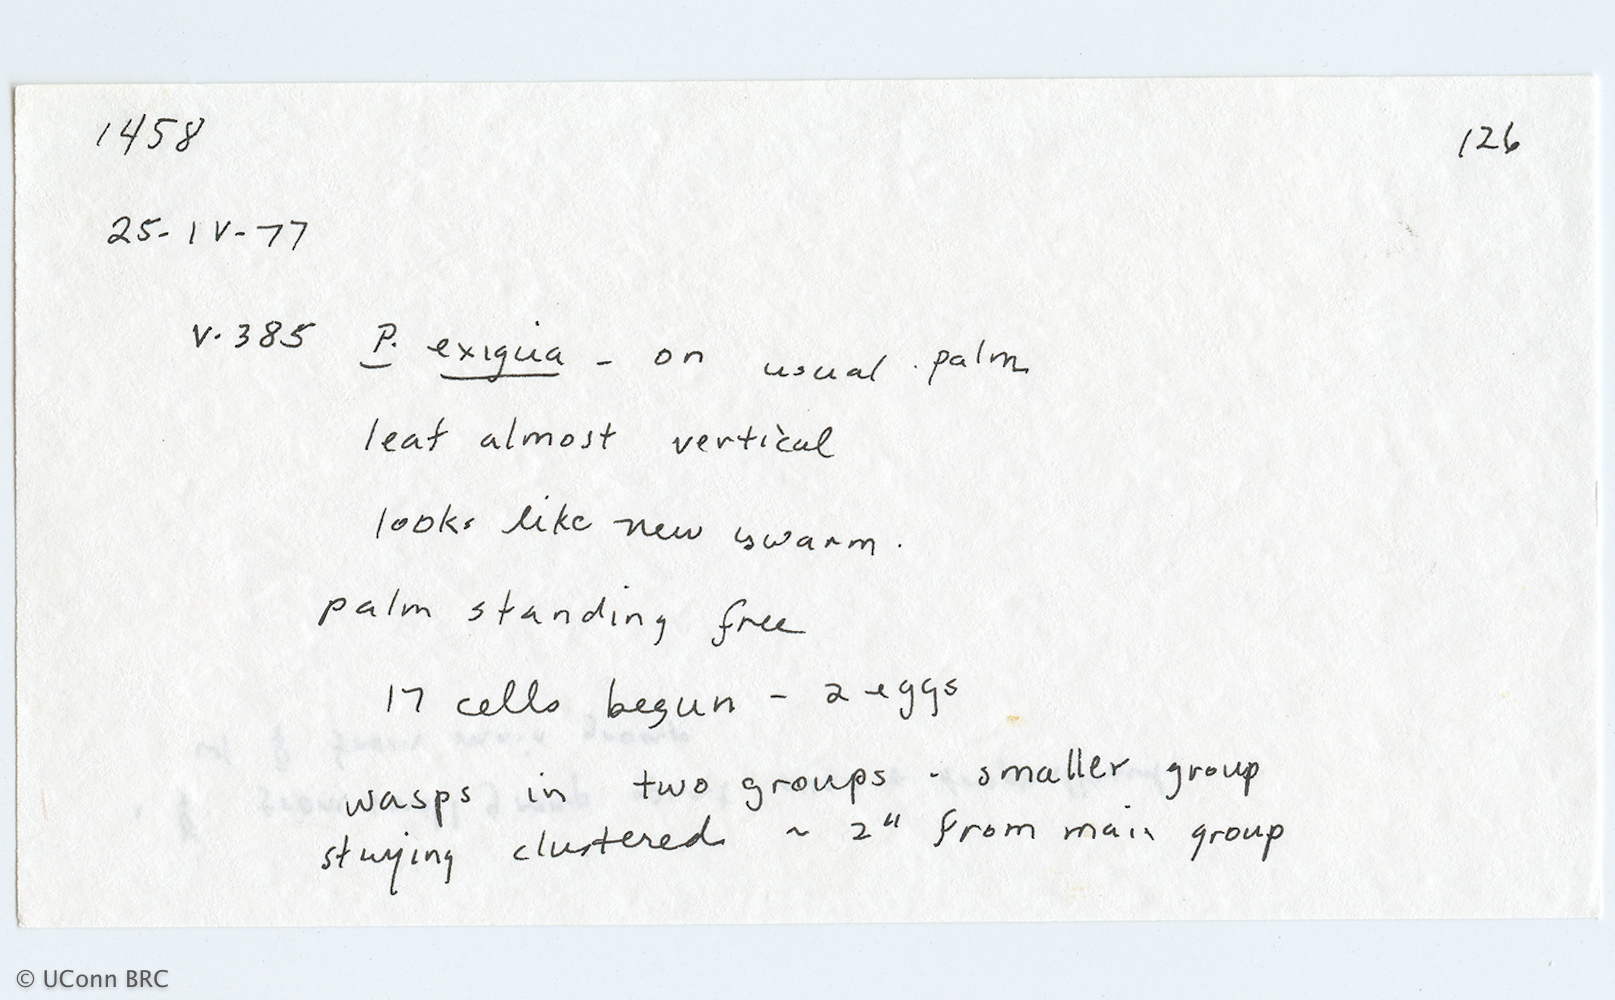 1458
126
25-IV-77
V-385 P. exigua - on usual palm
leaf almost vertical
looks like new swarm.
palm standing free
17 cells begun - 2 eggs
wasps in two groups - smaller group
staying clustered ~ 2" from main group
© UConn BRC